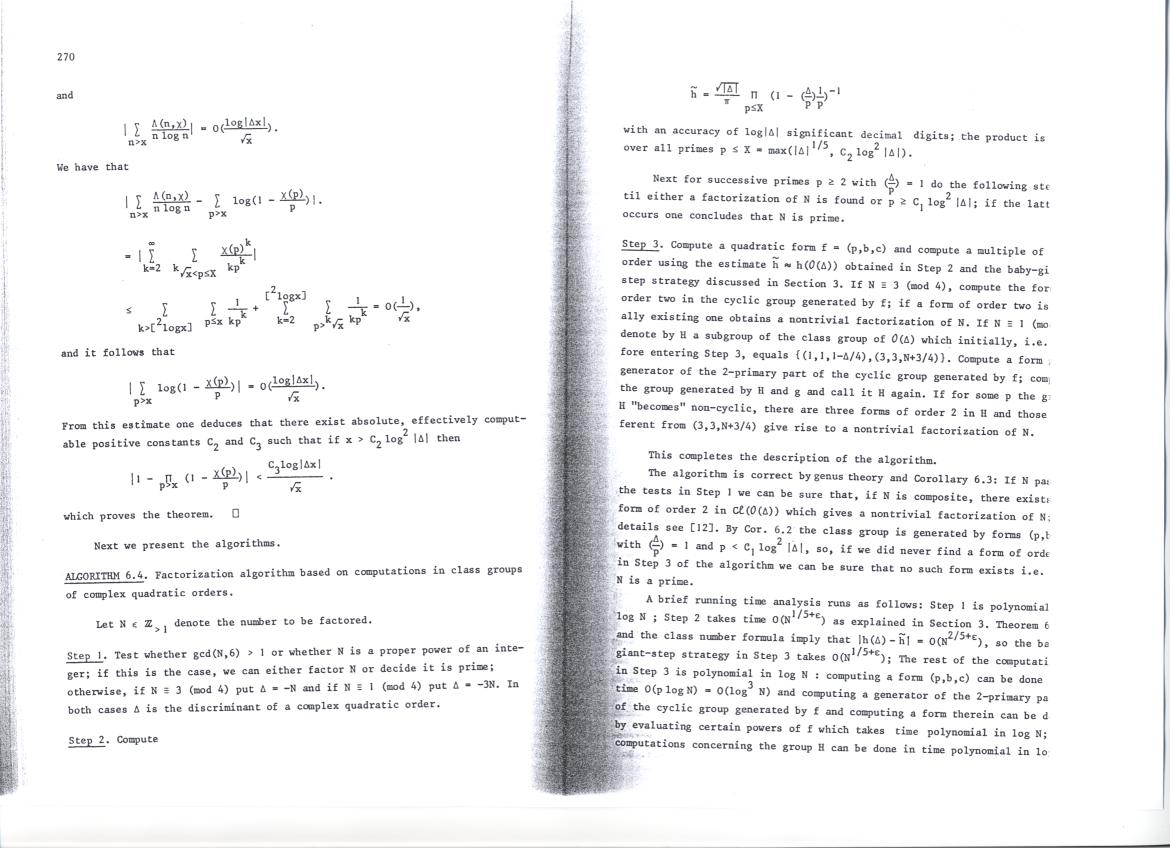 270
and
| Σ_{n>x} Λ(n,χ)/(n log n) | = O(log|Δx|/√x).
We have that
| Σ_{n>x} Λ(n,χ)/(n log n) - Σ_{p>x} log(1 - χ(p)/p) |.
= | Σ_{k=2}^{∞} Σ_{^k√x<p≤X} χ(p)^k/(kp^k) |
≤ Σ_{k>[²logx]} Σ_{p≤x} 1/(kp^k) + Σ_{k=2}^{[²logx]} Σ_{p>^k√x} 1/(kp^k) = O(1/√x),
and it follows that
| Σ_{p>x} log(1 - χ(p)/p) | = O(log|Δx|/√x).
From this estimate one deduces that there exist absolute, effectively comput-
able positive constants C₂ and C₃ such that if x > C₂ log² |Δ| then
|1 - Π_{p>x} (1 - χ(p)/p)| < C₃log|Δx|/√x .
which proves the theorem. □
Next we present the algorithms.
ALGORITHM 6.4. Factorization algorithm based on computations in class groups
of complex quadratic orders.
Let N ∈ ℤ_{>1} denote the number to be factored.
Step 1. Test whether gcd(N,6) > 1 or whether N is a proper power of an inte-
ger; if this is the case, we can either factor N or decide it is prime;
otherwise, if N ≡ 3 (mod 4) put Δ = -N and if N ≡ 1 (mod 4) put Δ = -3N. In
both cases Δ is the discriminant of a complex quadratic order.
Step 2. Compute
h̃ = √|Δ|/π Π_{p≤X} (1 - (Δ/p)1/p)⁻¹
with an accuracy of log|Δ| significant decimal digits; the product is
over all primes p ≤ X = max(|Δ|^{1/5}, C₂ log² |Δ|).
Next for successive primes p ≥ 2 with (Δ/p) = 1 do the following ste
til either a factorization of N is found or p ≥ C₁ log² |Δ|; if the latt
occurs one concludes that N is prime.
Step 3. Compute a quadratic form f = (p,b,c) and compute a multiple of
order using the estimate h̃ ≈ h(O(Δ)) obtained in Step 2 and the baby-gi
step strategy discussed in Section 3. If N ≡ 3 (mod 4), compute the for
order two in the cyclic group generated by f; if a form of order two is
ally existing one obtains a nontrivial factorization of N. If N ≡ 1 (mo
denote by H a subgroup of the class group of O(Δ) which initially, i.e.
fore entering Step 3, equals {(1,1,1-Δ/4),(3,3,N+3/4)}. Compute a form
generator of the 2-primary part of the cyclic group generated by f; com
the group generated by H and g and call it H again. If for some p the g
H "becomes" non-cyclic, there are three forms of order 2 in H and those
ferent from (3,3,N+3/4) give rise to a nontrivial factorization of N.
This completes the description of the algorithm.
The algorithm is correct by genus theory and Corollary 6.3: If N pas
the tests in Step 1 we can be sure that, if N is composite, there exists
form of order 2 in Cℓ(O(Δ)) which gives a nontrivial factorization of N;
details see [12]. By Cor. 6.2 the class group is generated by forms (p,b
with (Δ/p) = 1 and p < C₁ log² |Δ|, so, if we did never find a form of orde
in Step 3 of the algorithm we can be sure that no such form exists i.e.
N is a prime.
A brief running time analysis runs as follows: Step 1 is polynomial
log N ; Step 2 takes time O(N^{1/5+ε}) as explained in Section 3. Theorem 6
and the class number formula imply that |h(Δ) - h̃| = O(N^{2/5+ε}), so the ba
giant-step strategy in Step 3 takes O(N^{1/5+ε}); The rest of the computati
in Step 3 is polynomial in log N : computing a form (p,b,c) can be done
time O(p log N) = O(log³ N) and computing a generator of the 2-primary pa
of the cyclic group generated by f and computing a form therein can be d
by evaluating certain powers of f which takes time polynomial in log N;
computations concerning the group H can be done in time polynomial in lo